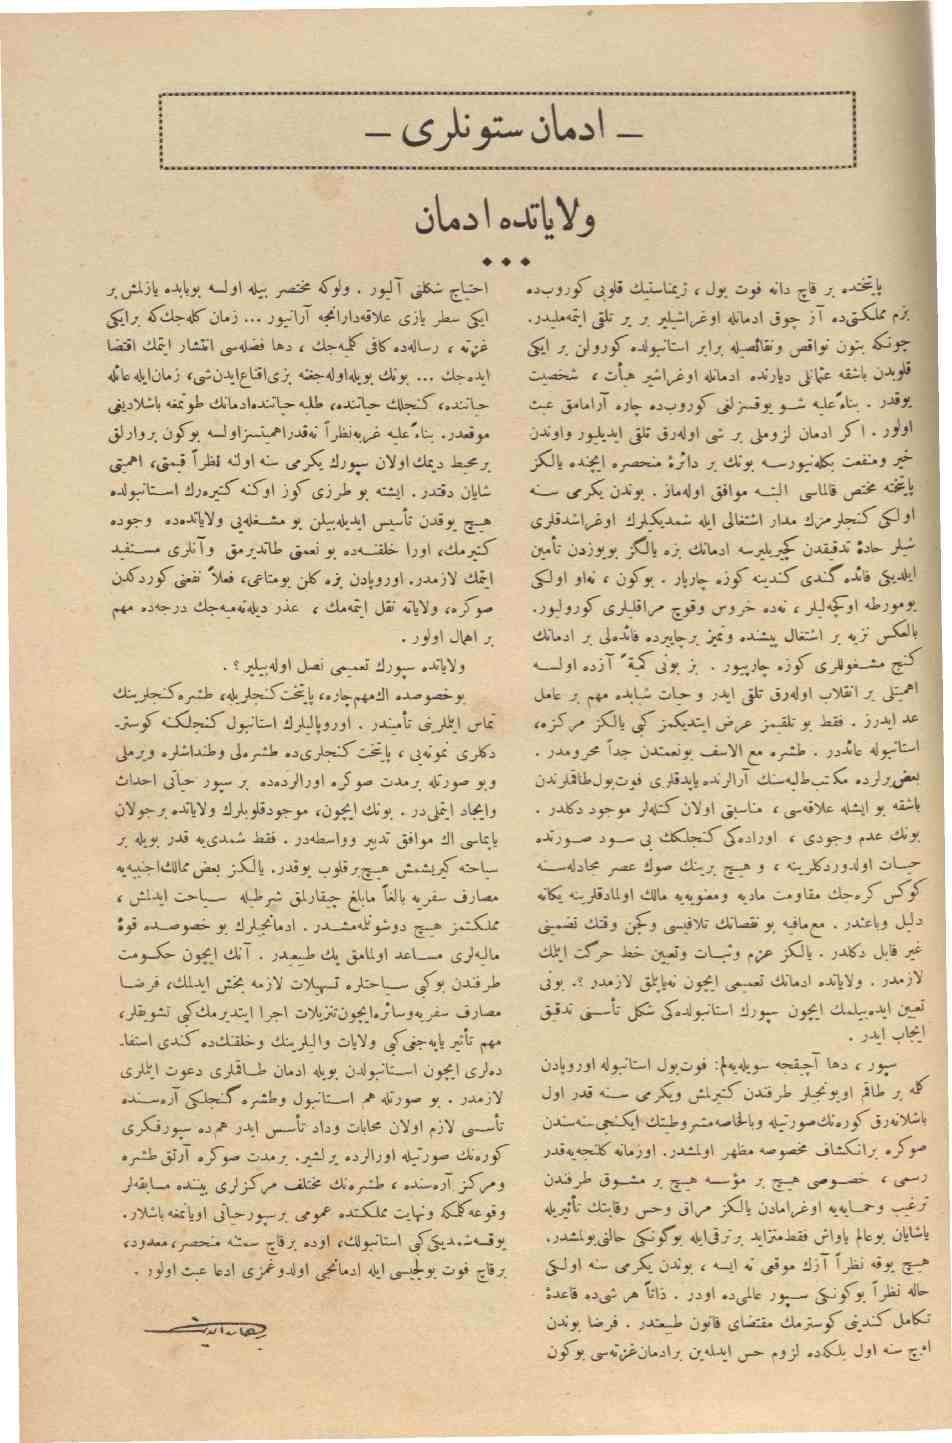 — ادمان ستونلری —
ولایاتده ادمان
پایتختده بر قاچ دانه فوت بول ، ژیمناستیك قلوبی كوروب‌ده
بزم مملكتی‌ده آز چوق ادمانله اوغراشیلیر بر یر تلقی ایتمه‌ملیدر.
چونكه بتون نواقص ونقائصیله برابر استانبولده كورولن بر ایكی
قلوبدن باشقه عثمانلی دیارنده ادمانله اوغراشیر هیأت ، شخصیت
یوقدر . بناءً علیه شو یوقسزلغی كوروب‌ده چاره آرامامق عبث
اولور . اكر ادمان لزوملی بر شی اوله‌رق تلقی ایدیلیور واوندن
خیر ومنفعت بكله‌نیورسه بونك بر دائرهٔ منحصره ایچنده یالكز
پایتخته مختص قالماسی البته موافق اوله‌ماز . بوندن یكرمی سنه
اولكی كنجلرمزك مدار اشتغالی ایله شمدیكیلرك اوغراشدقلری
شیلر حادهٔ تدقیقدن كچیریلیرسه ادمانك بزه یالگز بویوزدن تأمین
ایلدیكی فائده كندی كندینه كوزه چارپار . بوكون ، نه‌او اولكی
یومورطه اوكچه‌لیلر ، نه‌ده خروس وقوچ مراقلیلری كورولیور.
بالعكس نزیه بر اشتغال پیشنده وتمیز برچایرده فائده‌لی بر ادمانك
كنج مشغوللری كوزه چارپیور . بز بونی كمیةً آزده اولسه
اهمیتلی بر انقلاب اوله‌رق تلقی ایدر و حیات شبابده مهم بر عامل
عد ایدرز . فقط بو تلقیمز عرض ایتدیكمز كبی یالكز مركزه،
استانبوله عائددر . طشره مع الاسف بونعمتدن جداً محرومدر .
بعض یرلرده مكاتب طلبه‌سنك آرالرنده یاپدقلری فوت‌بول طاقملرندن
باشقه بو ایشله علاقه‌سی ، مناسبتی اولان كتله‌لر موجود دكلدر .
بونك عدم وجودی ، اوراده‌كی كنجلكك بی سود صورتده
حیات اولدوردكلرینه ، و هیچ برینك صوك عصر مجادله‌سنه
كوكس كره‌جك مقاومت مادیه ومعنویه‌یه مالك اولمادقلرینه یكانه
دلیل وباعثدر . مع‌مافیه بو نقصانك تلافیسی وكچن وقتك تضمینی
غیر قابل دكلدر . یالكز عزم وثبات وتعیین خط حركت ایتمك
لازمدر . ولایاتده ادمانك تعمیمی ایچون نه‌یاپملق لازمدر ؟. بونی
تعیین ایده‌بیلمك ایچون سپورك استانبولده‌كی شكل تأسسنی تدقیق
ایجاب ایدر .
سپور ، دها آچیقجه سویله‌یه‌لم: فوت‌بول استانبوله اوروپادن
كله بر طاقم اویونجیلر طرفندن كتیرلمش ویكرمی سنه قدر اول
باشلانه‌رق كوره‌نك صورتیله وبالخاصه مشروطیتك ایكنجی سنه‌سندن
صوكره برانكشاف مخصوصه مظهر اولمشدر. اوزمانه كلنجه‌یه‌قدر
رسمی ، خصوصی هیچ بر مؤسسه هیچ بر مشوق طرفندن
ترغیب وحمایه‌یه اوغرامادن یالكز مراق وحس رقابتك تأثیریله
یاشایان بوعالم یاواش فقط متزاید برترقی‌ایله بوگونكی حالنی بولمشدر.
هیچ یوقه نظراً آزك موقعی نه ایسه ، بوندن یكرمی سنه اولكی
حاله نظراً بوكونكی سپور عالمی‌ده اودر . ذاتاً هر شی‌ده قاعدهٔ
تكامل كندینی كوسترمك مقتضای قانون طبیعتدر . فرضا بوندن
اوچ سنه اول بلكه‌ده لزوم حس ایدیله‌ین برادمان‌غزته‌سی بوكون
احتیاج شكلنی آلیور . ولوكه مختصر بیله اولسه بوبابده یازلمش بر
ایكی سطر یازی علاقه‌دارانجه آرانیور ... زمان كله‌جك‌كه برایكی
غزته ، رساله‌ده كافی كلمیه‌جك ، دها فضله‌سی انتشار ایتمك اقتضا
ایده‌جك ... بونك بویله‌اوله‌جغنه بزی‌اقناع‌ایدن‌شی، زمان‌ایله عائله
حیاتنده، كنجلك حیاتنده، طلبه حیاتنده‌ادمانك طوتمغه باشلادیغی
موقعدر. بناءً علیه غربه‌نظراً نه‌قدراهمیتسزاولسه بوكون بروارلق
برمحیط دیمك اولان سپورك یكرمی سنه اولنه نظراً قیمتی، اهمیتی
شایان دقتدر. ایشته بو طرزی كوز اوكنه كتیره‌رك استانبولده
هیچ یوقدن تأسیس ایدیله‌بیلن بو مشغله‌یی ولایاتده‌ده وجوده
كتیرمك، اورا خلقنه‌ده بو نعمتی طاتدیرمق وآنلری مستفید
ایتمك لازمدر. اوروپادن بزه كلن بومتاعی، فعلاً نفعنی كوردكدن
صوكره، ولایاته نقل ایتمه‌مك ، عذر دیله‌نه‌میه‌جك درجه‌ده مهم
بر اهمال اولور .
ولایاتده سپورك تعمیمی نصل اوله‌بیلیر ؟ .
بوخصوصده اك‌مهم‌چاره، پایتخت‌كنجلریله، طشره كنجلرینك
تماس ایتملرینی تأمیندر. اوروپالیلرك استانبول كنجلكنه كوستر-
دكلری نمونه‌یی ، پایتخت كنجلری‌ده طشره‌لی وطنداشلره ویرملی
وبو صورتله برمدت صوكره اورالرده‌ده بر سپور حیاتی احداث
وایجاد ایتملی‌در. بونك ایچون، موجودقلوبلرك ولایاتده برجولان
یاپماسی اك موافق تدبیر وواسطه‌در. فقط شمدی‌یه قدر بویله بر
سیاحته كیریشمش هیچ‌برقلوب یوقدر. یالكز بعض ممالك‌اجنبیه‌یه
مصارف سفریه بالغاً مابلغ چیقارلمق شرطیله سیاحت ایدلمش ،
مملكتمز هیچ دوشونله‌مشدر. ادمانجیلرك بو خصوصده قوهٔ
مالیه‌لری مساعد اولمامق پك طبیعیدر. آنك ایچون حكومت
طرفندن بوكبی سیاحتلره تسهیلات لازمه بخش ایدلمك، فرضا
مصارف سفریه‌وسائره‌ایچون‌تنزیلات اجرا ایتدیرمك‌كبی تشویقلر،
مهم تأثیر یاپه‌جغی‌كبی ولایات والیلرینك وخلقنك‌ده كندی استفا-
ده‌لری ایچون استانبولدن بویله ادمان طاقملری دعوت ایتملری
لازمدر. بو صورتله هم استانبول وطشره گنجلكی آره‌سنده
تأسسی لازم اولان محابات وداد تأسس ایدر هم‌ده سپورفكری
كوره‌نك صورتیله اورالرده یرلشیر. برمدت صوكره آرتق طشره
ومركز آره‌سنده ، طشره‌نك مختلف مركزلری بیننده مسابقه‌لر
وقوعه‌كلمكه ونهایت مملكتده عمومی برسپورحیاتی اویانمغه باشلار.
یوقسه‌شمدیكی‌كبی استانبولك، اوده برقاچ سمتنه منحصر، معدود،
برقاچ فوت بولجیسی ایله ادمانجی اولدوغمزی ادعا عبث اولور .